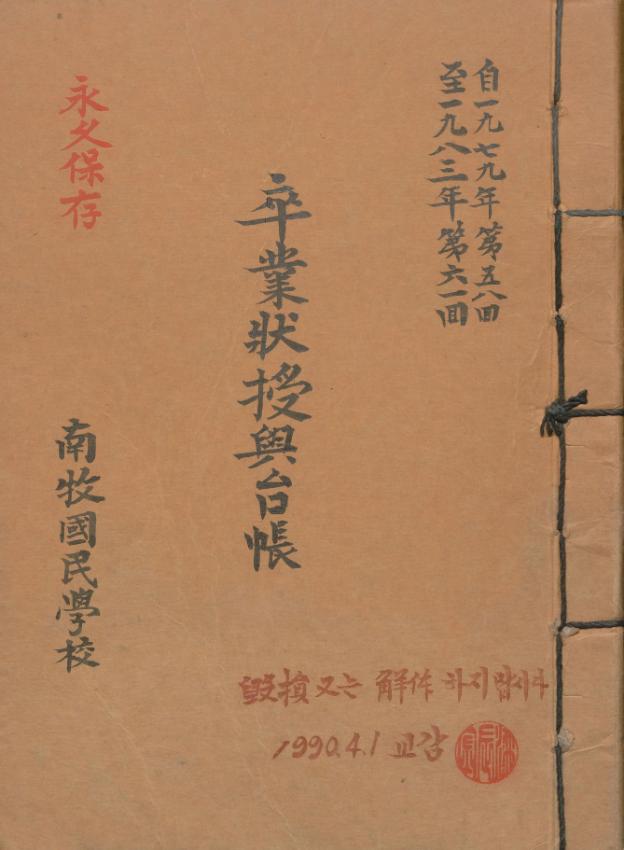 自一九七九年 第五八回
至一九八三年 第六一回
卒業狀授與台帳
永久保存
南牧國民學校
毁損 又는 解体 하지 맙시다
1990.4.1 교감